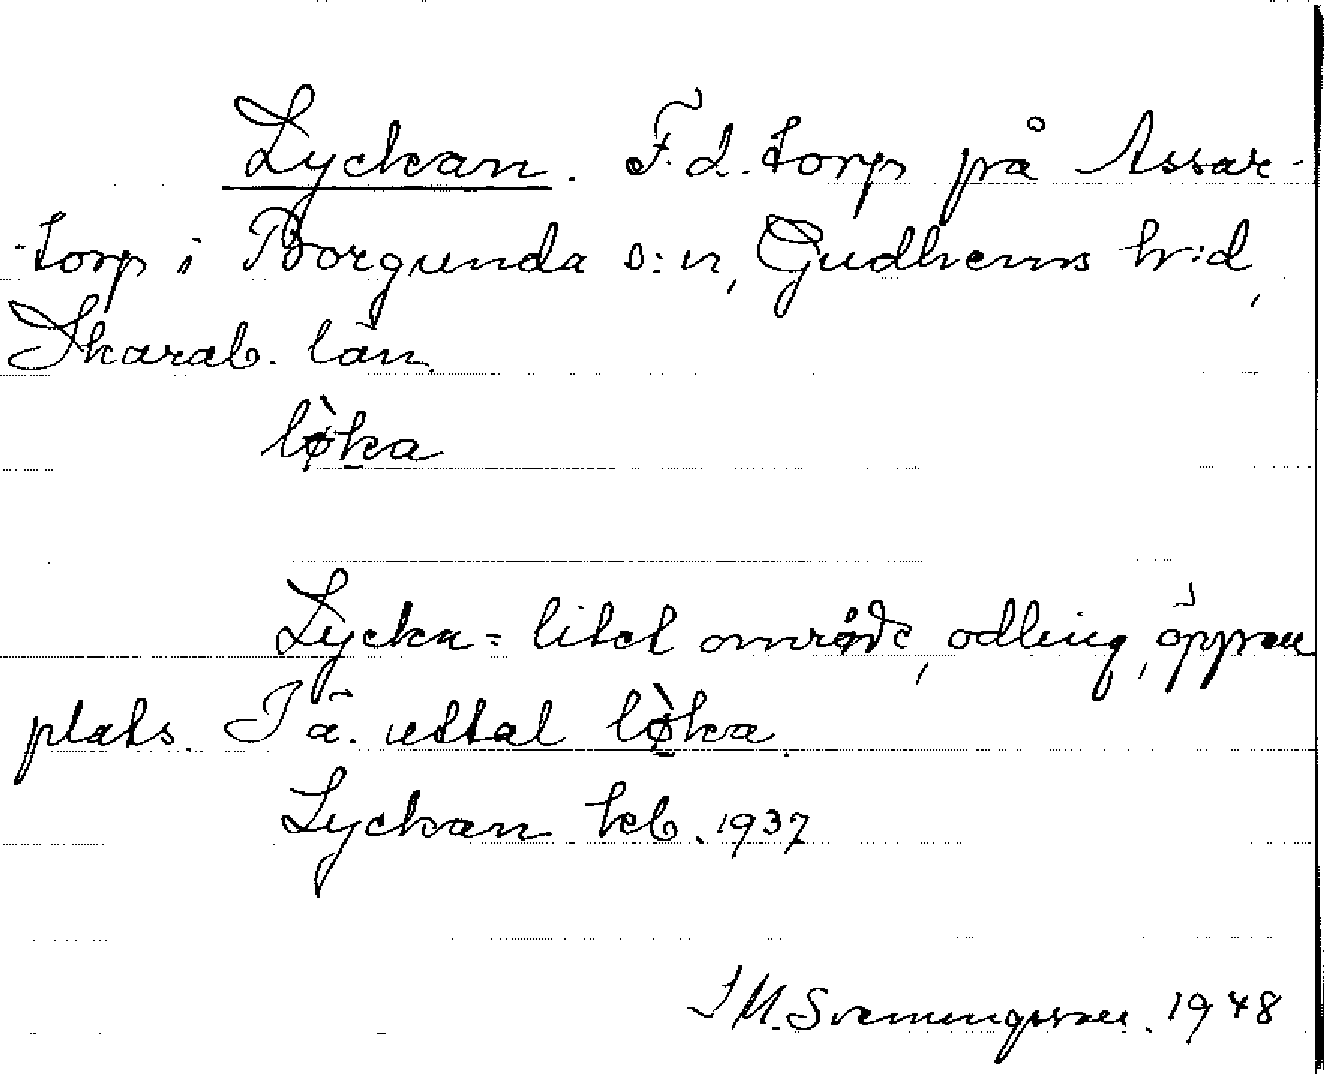 Lyckan. F.d. torp på Assar-
torp i Borgunda s:n, Gudhems h:d,
Skarab. län.
lø̀ka
Lycka = litet område, odling, öppen
plats. I ä. uttal lø̀ka.
Lyckan kb. 1937
I M. Svenungsson. 1948